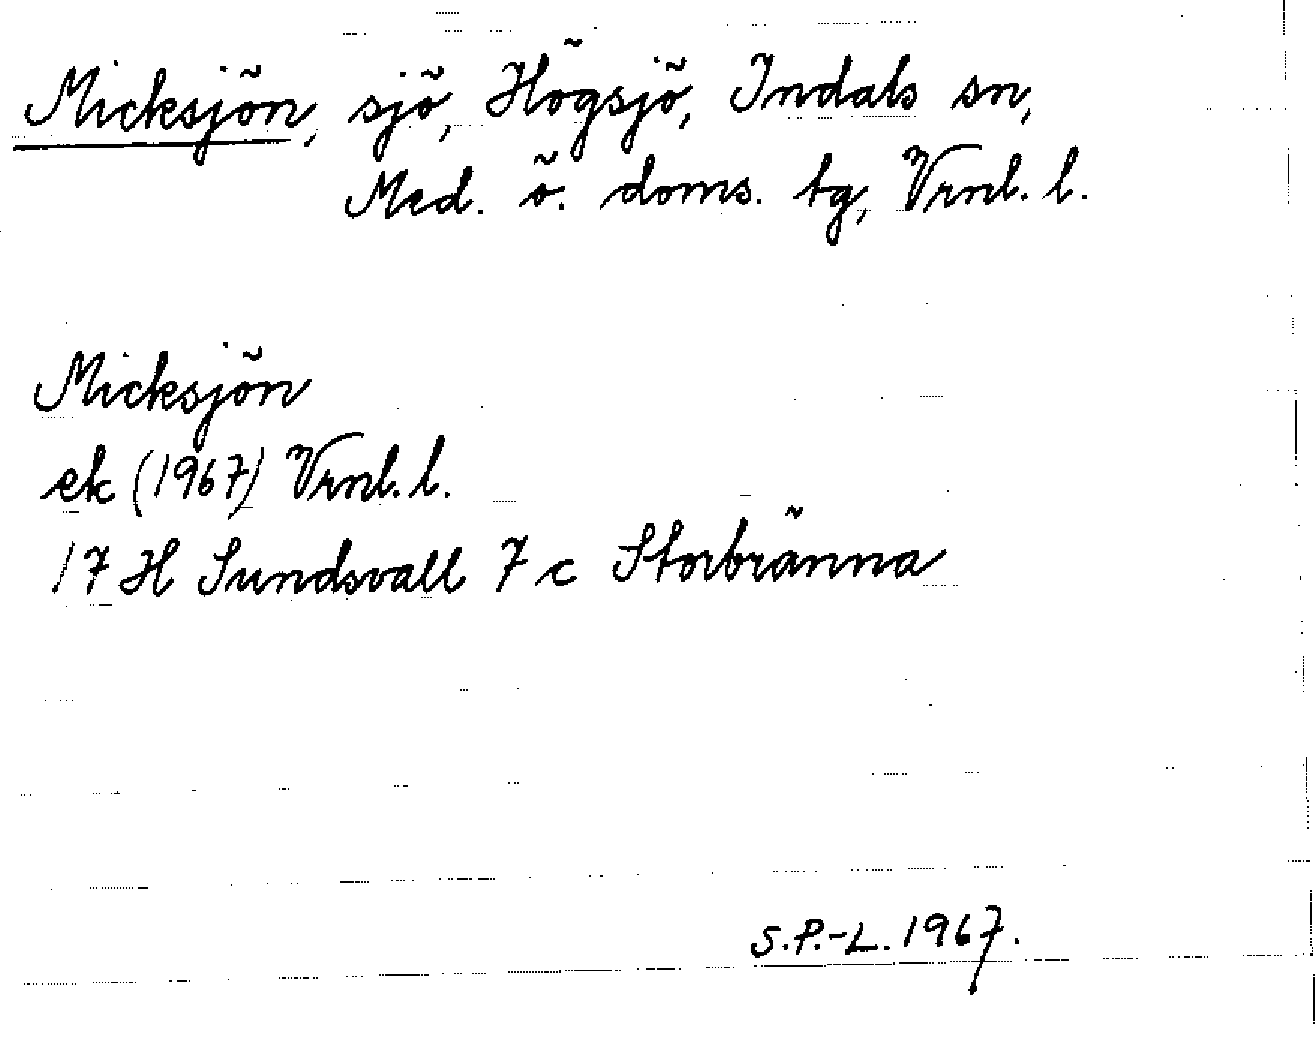 Micksjön, sjö, Högsjö, Indals sn,
Med. ö. doms. tg, Vrnl. l.
Micksjön
ek (1967) Vrnl. l.
17 H Sundsvall 7 c Storbränna
S.P.-L. 1967.